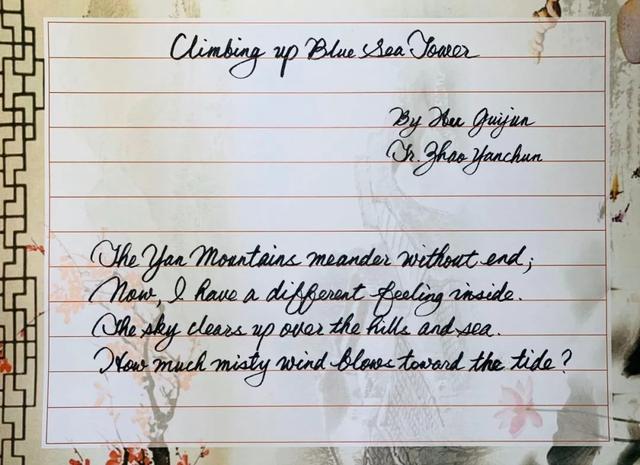 Climbing up Blue Sea Tower
By Hu Guijun
Tr. Zhao Yanchun
The Yan Mountains meander without end;
Now, I have a different feeling inside.
The sky clears up over the hills and sea.
How much misty wind blows toward the tide?